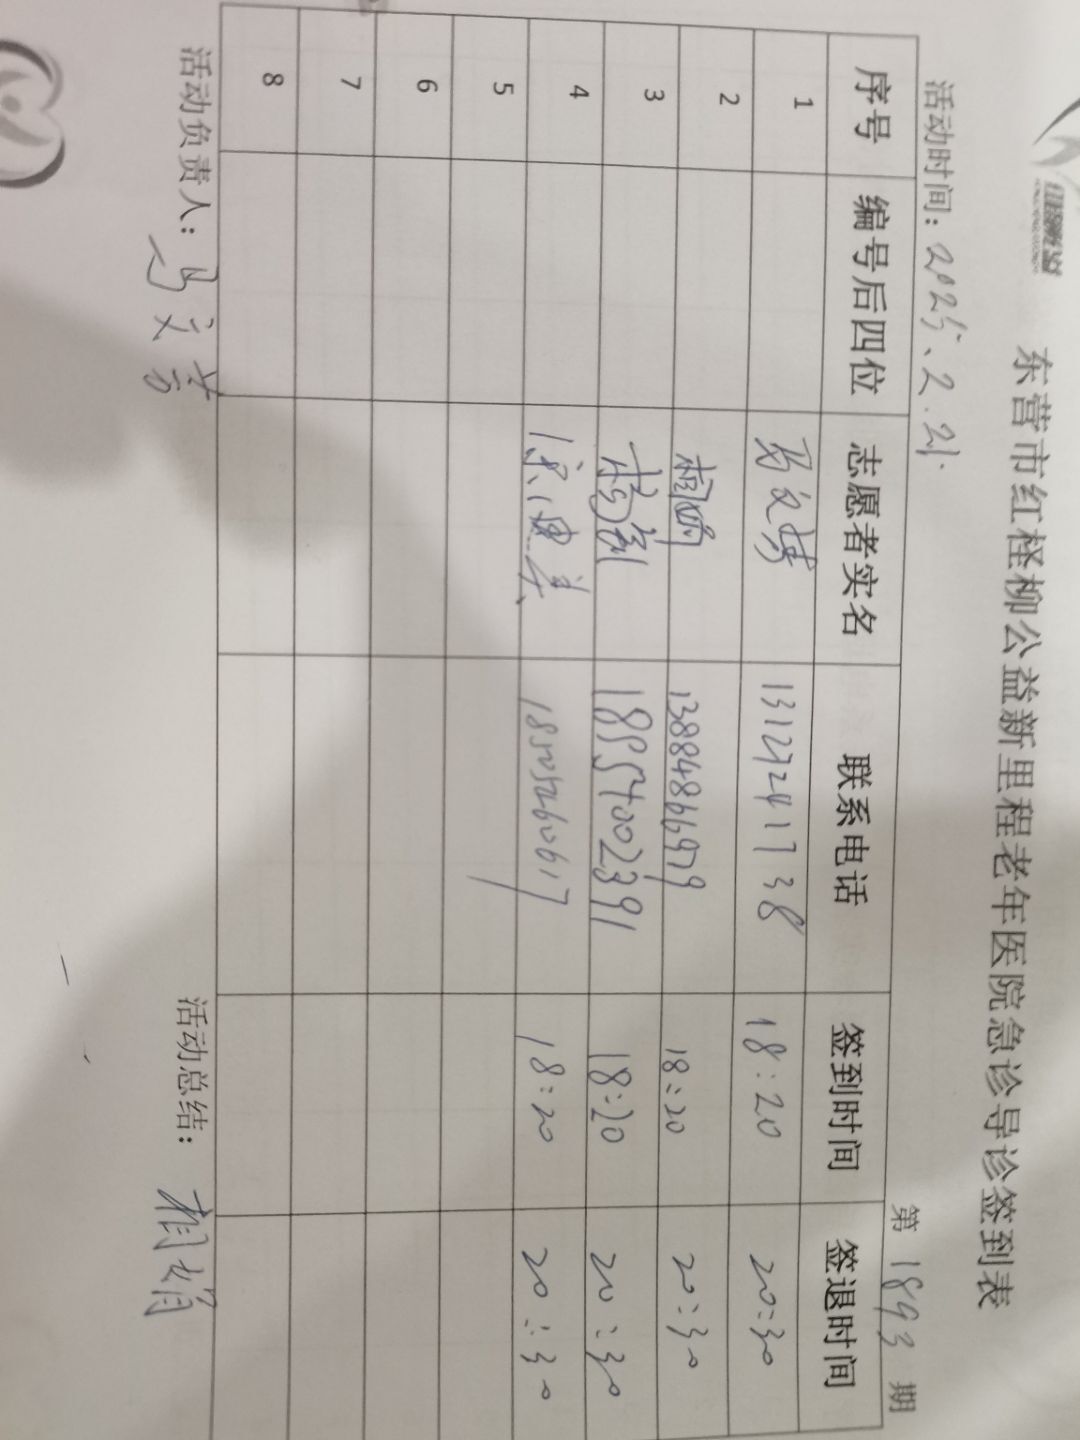 东营市红柽柳公益新里程老年医院急诊导诊签到表
活动时间：2025.2.21. 第 1893 期
序号 编号后四位 志愿者实名 联系电话 签到时间 签退时间
1 18:20 20:30
2 13884866979 18:20 20:30
3 18:20 20:30
4 18505460617 18:20 20:30
5
6
7
8
活动负责人： 活动总结：